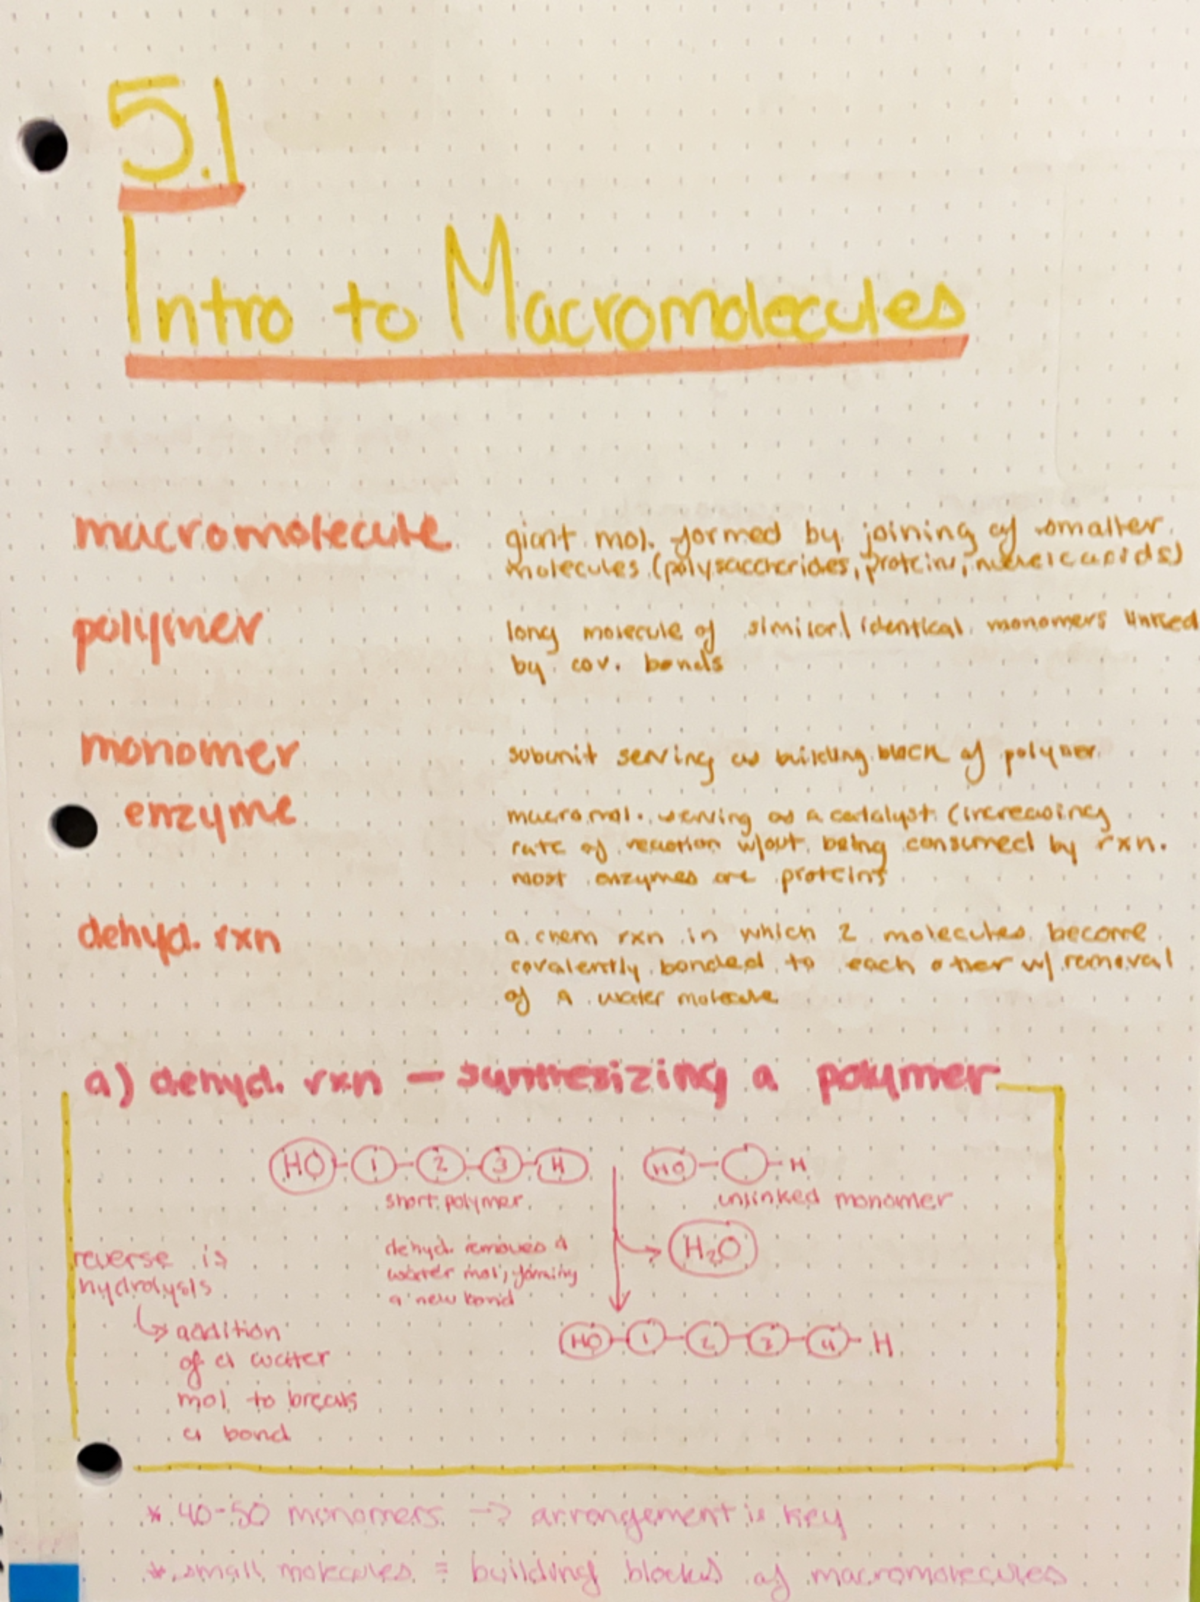 5.1
Intro to Macromolecules
macromolecule giant mol. formed by joining of smaller
molecules (polysaccharides, proteins, nucleic acids)
polymer long molecule of similar/identical monomers linked
by cov. bonds
monomer subunit serving as building block of polymer
enzyme macromol. serving as a catalyst (increasing
rate of reaction w/out being consumed by rxn.
most enzymes are proteins
dehyd. rxn a chem rxn in which 2 molecules become
covalently bonded to each other w/ removal
of a water molecule
a) dehyd. rxn – synthesizing a polymer
HO 1 2 3 H HO H
short polymer unlinked monomer
dehyd. removes a H₂O
water mol, forming
a new bond
reverse is
hydrolysis
↳ addition
of a water
mol to break
a bond
HO 1 2 3 4 H
* 40-50 monomers → arrangement is key
* small molecules = building blocks of macromolecules